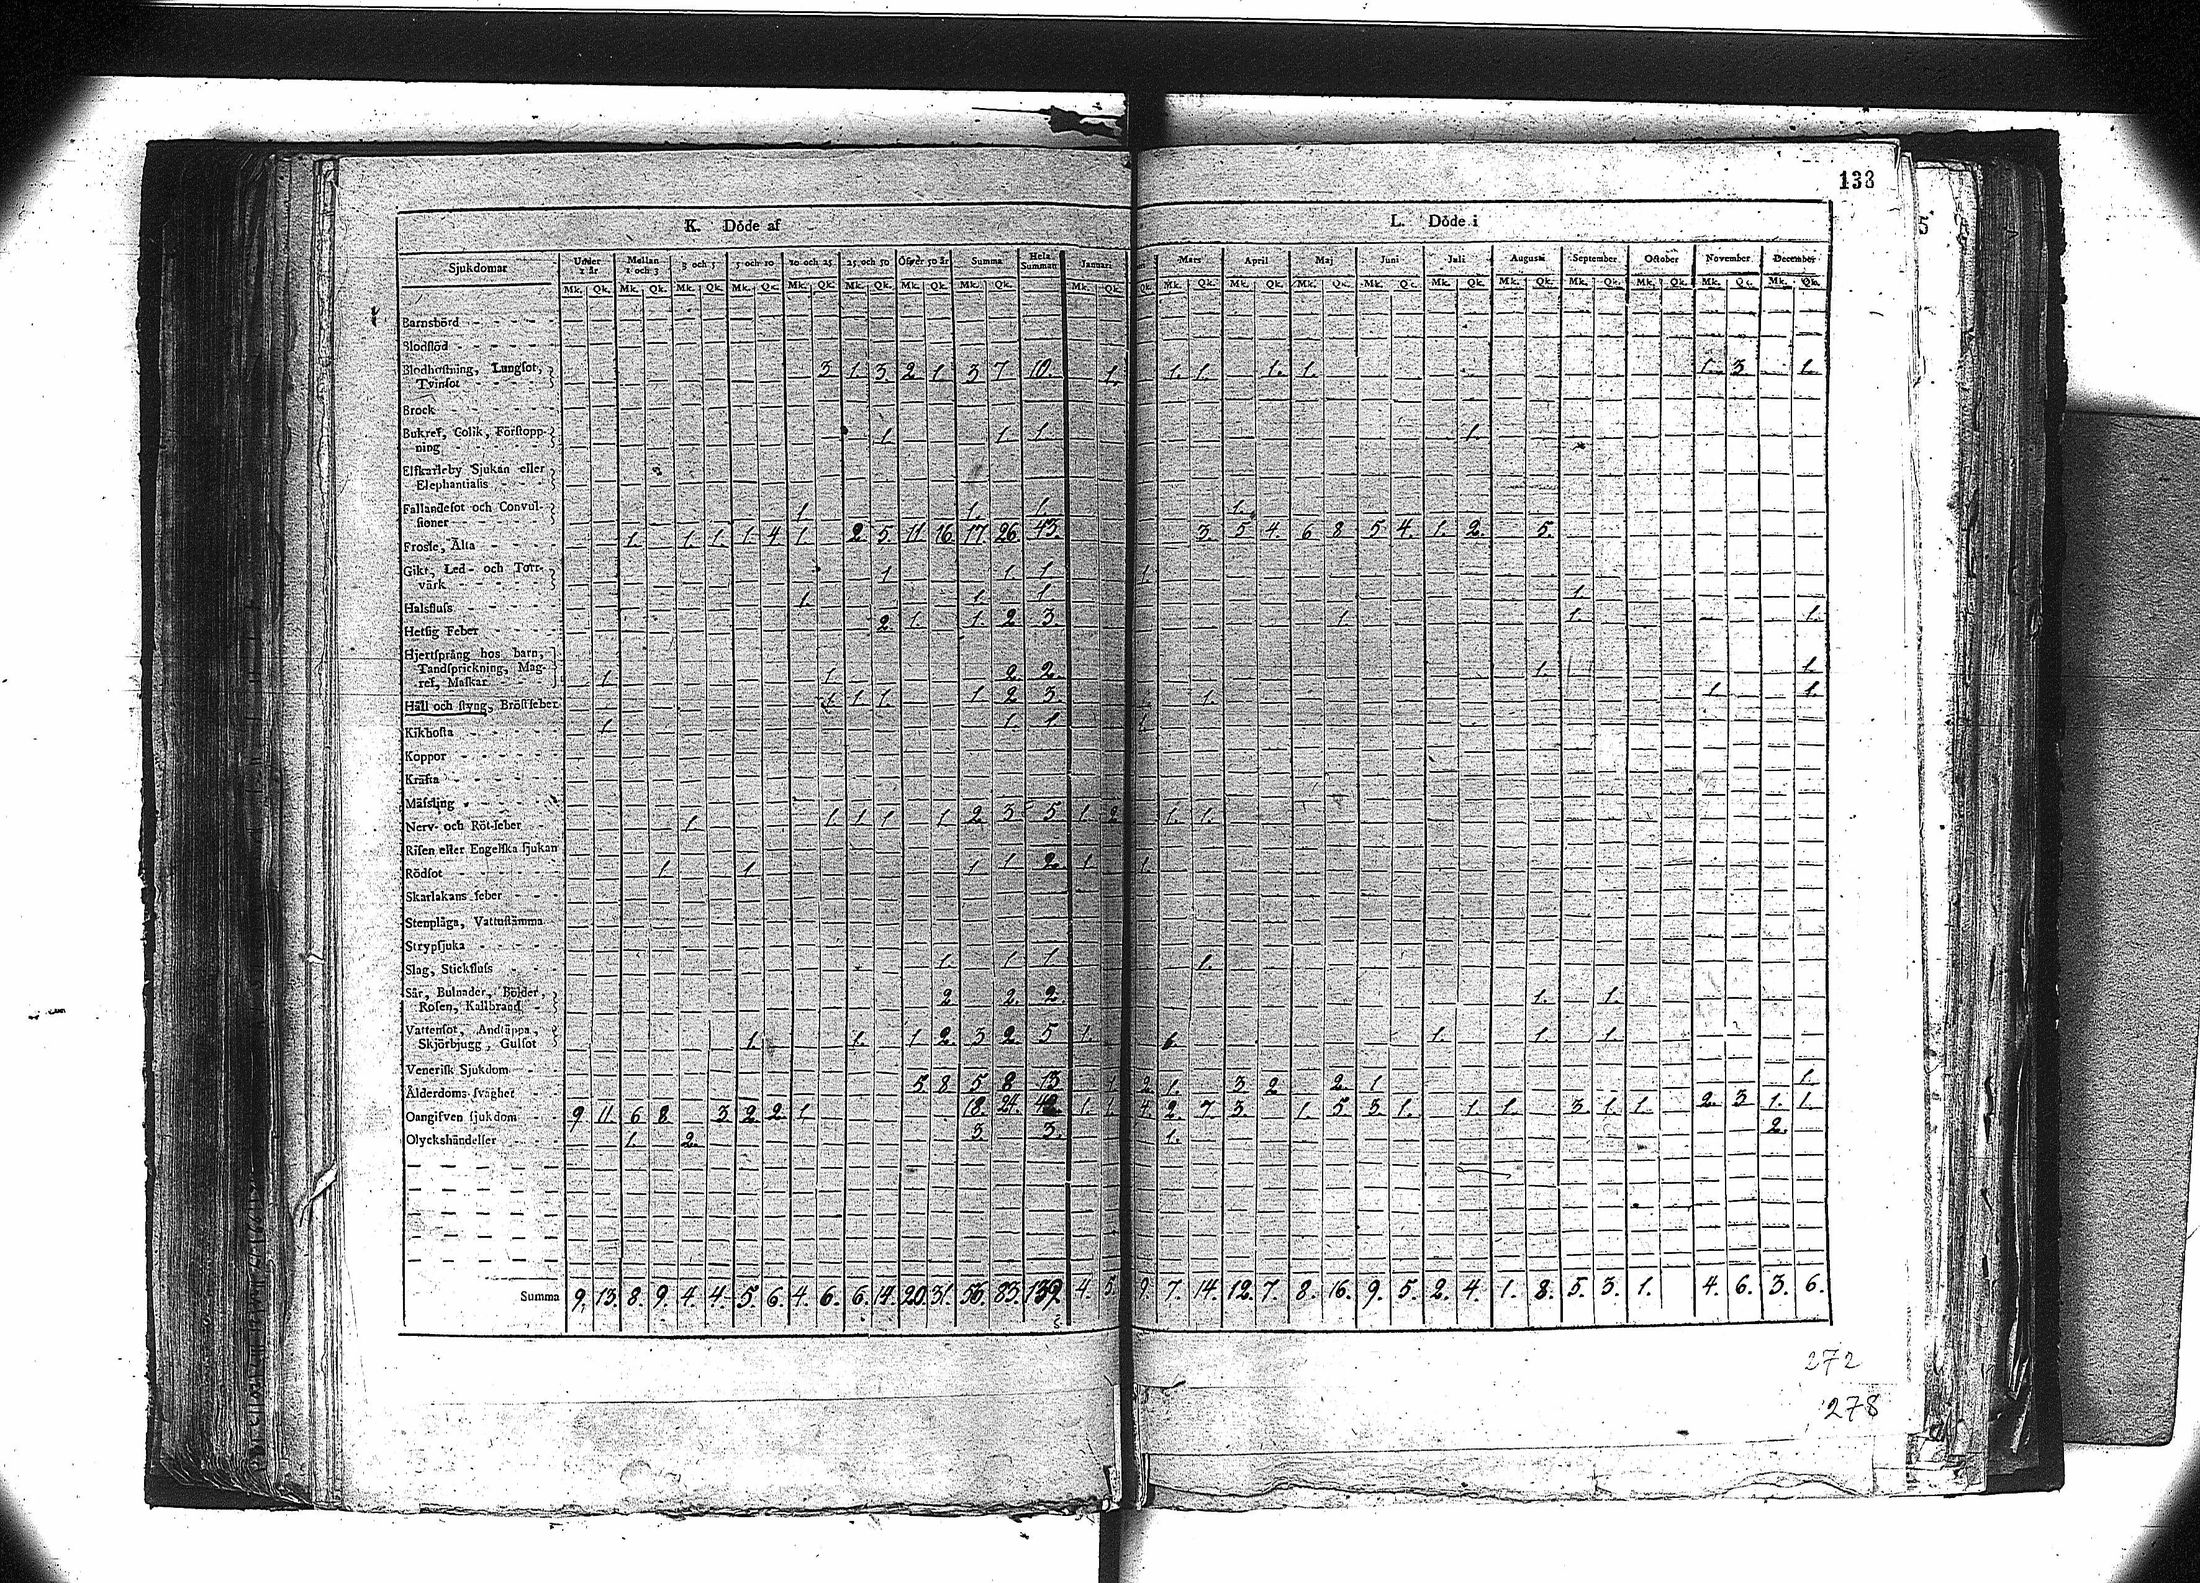 133
5
K. Döde af
L. Döde i
Sjukdomar Under 1 år Mellan 1 och 3 3 och 5 5 och 10 10 och 25 25 och 50 Öfver 50 år Summa Hela Summan Januari Mars April Maj Juni Juli Augusti September October November December
Mk. Qk. Mk. Qk. Mk. Qk. Mk. Qk. Mk. Qk. Mk. Qk. Mk. Qk. Mk. Qk. Mk. Qk. Qk. Mk. Qk. Mk. Qk. Mk. Qk. Mk. Qk. Mk. Qk. Mk. Qk. Mk. Qk. Mk. Qk. Mk. Qk. Mk. Qk.
Barnsbörd
Blodflöd
Blodhostning, Lungsot,
Tvinsot 3 1. 3. 2 1. 3 7 10. 1. 1. 1. 1. 1. 1. 3. 1.
Brock
Bukref, Colik, Förstopp-
ning 1. 1. 1. 1.
Elfkarleby Sjukan eller
Elephantiasis
Fallandesot och Convul-
sioner 1. 1. 1. 1.
Frossa, Älta 1. 1. 1. 1. 4. 1. 2 5. 11 16. 17. 26. 43. 3. 5 4. 6 8 5 4. 1. 2. 5.
Gikt, Led- och Torr-
värk 1 1. 1 1
Halsfluss 1. 1. 1. 1.
Hetsig Feber 2. 1. 1. 2 3. 1. 1. 1.
Hjertsprång hos barn,
Tandsprickning, Mag-
ref, Maskar 1. 1. 2 2. 1. 1.
Håll och styng, Bröstfeber 1. 1. 1. 1 2 3. 1. 1. 1.
Kikhosta 1. 1. 1. 1.
Koppor
Kräfta
Mässling
Nerv- och Röt-feber 1. 1. 1. 1. 1. 2. 3 5 1. 2 1. 1.
Risen eller Engelska sjukan
Rödsot 1. 1. 1 1 2. 1. 1.
Skarlakans feber
Stenplåga, Vattustämma
Strypsjuka
Slag, Stickfluss 1. 1 1. 1.
Sår, Bulnader, Bölder,
Rosen, Kallbrand 2 2. 2 1. 1.
Vattensot, Andtäppa,
Skjörbjugg, Gulsot 1. 1. 1 2. 3 2. 5 1. 1. 1. 1.
Venerisk Sjukdom
Ålderdoms svaghet 5 8. 5 8. 13 1. 2. 1. 3 2 2. 1 1.
Oangifven sjukdom 9 11. 6 8. 3 2. 2. 1 18. 24. 42. 1. 1. 4. 2. 7. 3. 1. 5. 3 1. 1. 1. 3. 1. 1. 2. 3 1. 1.
Olyckshändelser 1. 2. 3. 3. 1. 2.
Summa 9. 13. 8. 9. 4. 4. 5. 6. 4. 6. 6. 14. 20. 31. 56. 83. 139. 4. 5. 9. 7. 14. 12. 7. 8. 16. 9. 5. 2. 4. 1. 8. 5. 3. 1. 4. 6. 3. 6.
272
278